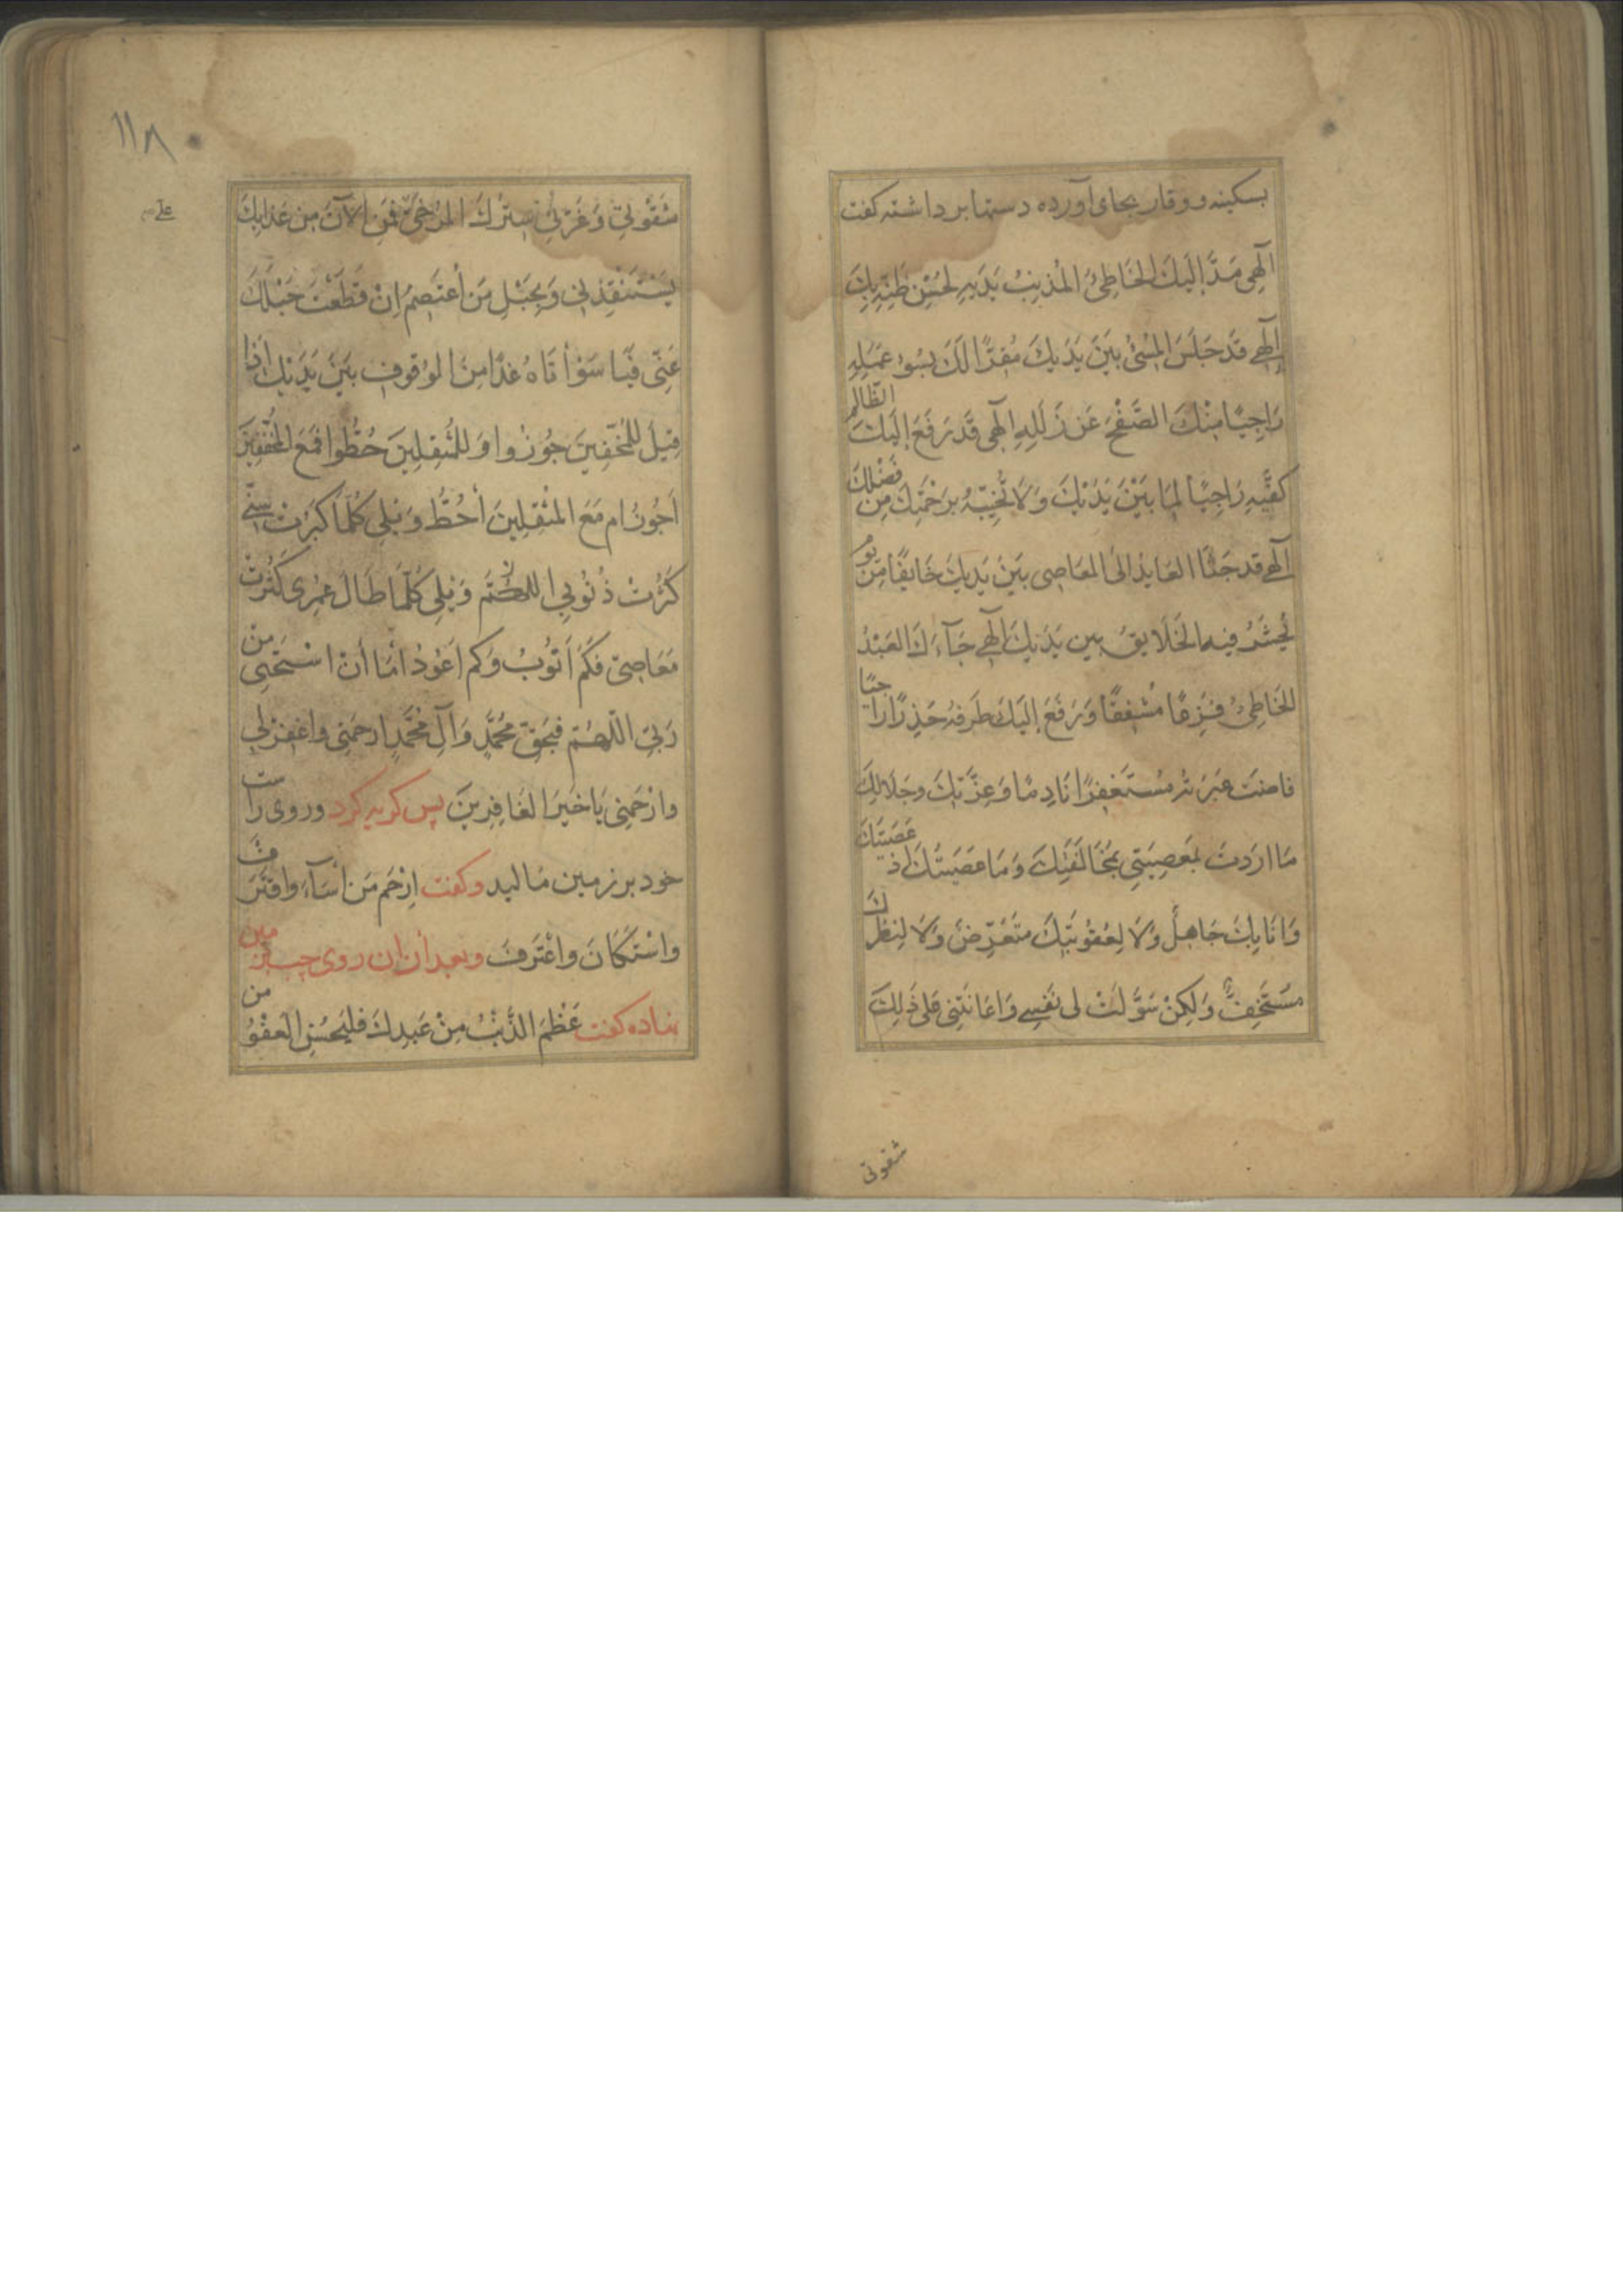 بسکینه و وقار بجای آورده دستها بر داشته کفت
الٓهی مَدَّ اِلَیكَ الخَاطِیُ المُذنِبُ یَدَیهِ لِحُسْنِ ظَنِّهِ بِكَ
اِلٓهی قَد جَلَسَ المُسیُٔ بَینَ یَدَیكَ مُقِرًّا لَكَ بِسُوءِ عَمَلِهِ
رَاجِیًا مِنْكَ الصَّفْحَ عَن زَلَلِهِ اِلٓهی قَد رَفَعَ اِلَیكَ الظّالِمُ
کَفَّیهِ رَاجِیًا لِمَا بَیْنَ یَدَیْكَ وَلَا تُخَیِّبْهُ بِرَحْمَتِكَ مِن فَضْلِكَ
الٓهی قد جَثَا العَایدُ الیَ المعَاصِی بَینَ یَدَیكَ خَایفًا مِن یَومٍ
یُحشَرُ فیه الخَلَایقُ بین یَدَیكَ اِلٓهی جَآءَكَ العَبْدُ
الخَاطِیُ فَزِعًا مُشْفِقًا وَرَفَعَ اِلَیكَ طَرفَهُ حَذِرًا رَاجیًا
فاضَت عَبرَتُهُ مُستَغفِرًا نَادِمًا وَعِزَّتِكَ وجَلَالِكَ
مَا اردَتُ بمَعصِیَتِی مُخَالَفَتَكَ وَمَا عَصَیتُكَ اذ عَصَیتُكَ
وَانَا بِكَ جَاهِلٌ وَلَا لِعُقُوبَتِكَ متَعَرِّضٌ وَلَا لِنظَرِكَ
مستَخِفٌّ وَلکِنْ سَوَّلَتْ لی نَفسِی وَاعَانَتْنِی عَلی ذَلِكَ
شقوتی
١١٨
شَقْوَتِی وَغَرَّنِی سِتْرُكَ المُرْخَیُّ فَمَنِ الآنَ مِن عَذابِكَ
یَسْتَنْقِذُنِی وَبِحَبْلِ مَن أَعْتَصِمُ اِنْ قَطَعْتَ حَبْلَكَ
عَنِّی فَیَا سَوْأَتَاهُ غَدًا مِنَ الوُقوفِ بَینَ یَدَیْكَ اذا
قِیلَ لِلمُخِفّینَ جُوزُوا وَلِلمُثقِلِینَ حُطُّوا فَمَعَ المُخِفِّینَ
اَجُوزُ ام مَعَ المُثْقِلِینَ اَحُطُّ وَیْلِی کُلَّمَا کَبُرَتْ سِنِّی
کَثُرَتْ ذُنُوبِی اللهُمَّ وَیْلِی کُلَّمَا طَالَ عُمْرِی کَثُرَتْ
مَعَاصِیَّ فَکَمْ اَتُوبُ وَکَم اَعُودُ اَمَا اَنْ اَسْتَحْیِی مِنْ
رَبِّی اللّهُمَّ فَبِحَقِّ مُحَمَّدٍ وَآلِ مُحَمَّدٍ ارحَمْنِی واغفِرْلِی
وارْحَمْنِی یَا خَیرَ الغَافِرِینَ پس کریه کرد و روی راست
خود بر زمین مالید و کفت اِرْحَم مَن اَسَآءَ واقْتَرَفَ
واسْتَکَانَ واعْتَرَفَ و بعد از ان روی چپ بر زمین
نهاده کفت عَظُمَ الذَّنْبُ مِنْ عَبدِكَ فَلْیَحْسُنِ العَفْوُ من